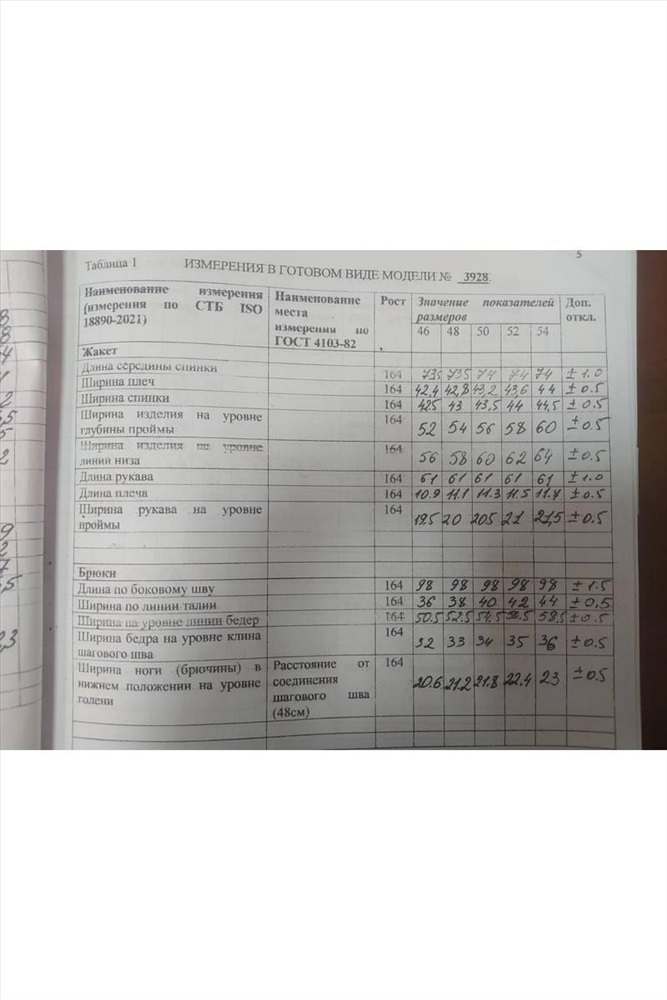 5
Таблица 1 ИЗМЕРЕНИЯ В ГОТОВОМ ВИДЕ МОДЕЛИ № 3928.
Наименование измерения (измерения по СТБ ISO 18890-2021) Наименование места измерения по ГОСТ 4103-82 Рост Значение показателей размеров Доп. откл.
46 48 50 52 54
Жакет
Длина середины спинки 164 73,5 73,5 74 74 74 ± 1.0
Ширина плеч 164 42,4 42,8 43,2 43,6 44 ± 0.5
Ширина спинки 164 42.5 43 43,5 44 44,5 ± 0.5
Ширина изделия на уровне глубины проймы 164 52 54 56 58 60 ± 0.5
Ширина изделия на уровне линии низа 164 56 58 60 62 64 ± 0.5
Длина рукава 164 61 61 61 61 61 ± 1.0
Длина плеча 164 10.9 11.1 11.3 11.5 11.7 ± 0.5
Ширина рукава на уровне проймы 164 19.5 20 20.5 21 21,5 ± 0.5
Брюки
Длина по боковому шву 164 98 98 98 98 98 ± 1.5
Ширина по линии талии 164 36 38 40 42 44 ± 0.5
Ширина на уровне линии бедер 164 50.5 52.5 54,5 56.5 58,5 ± 0.5
Ширина бедра на уровне клина шагового шва 164 32 33 34 35 36 ± 0.5
Ширина ноги (брючины) в нижнем положении на уровне голени Расстояние от соединения шагового шва (48см) 164 20.6 21.2 21.8 22.4 23 ± 0.5